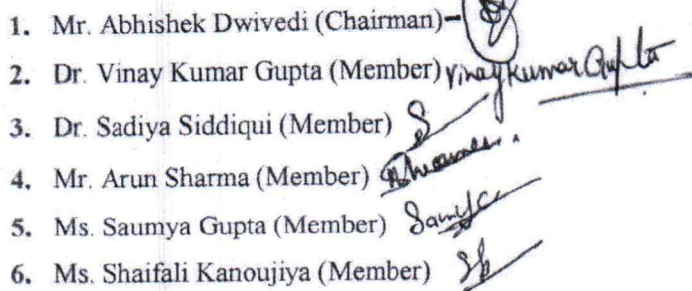 1. Mr. Abhishek Dwivedi (Chairman)-
2. Dr. Vinay Kumar Gupta (Member) Vinay Kumar Gupta
3. Dr. Sadiya Siddiqui (Member) S
4. Mr. Arun Sharma (Member)
5. Ms. Saumya Gupta (Member)
6. Ms. Shaifali Kanoujiya (Member)